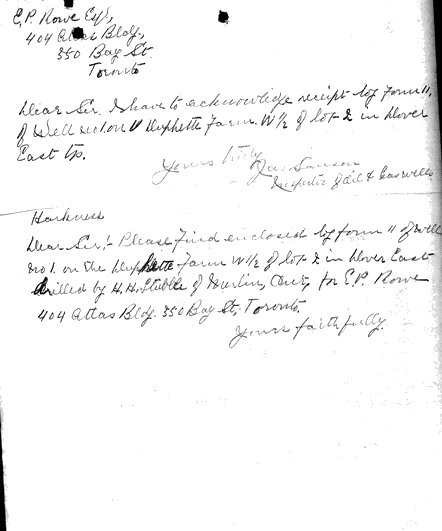 E.P. Rowe Esq,
404 Atlas Bldg,
350 Bay St.
Toronto
Dear Sir, I have to acknowledge receipt of form 11,
of Well No 1 on Huphette Farm. W 1/2 of lot 2 in Dover
East Tp.
Yours truly
Inspector of Oil & Gas wells
Harkness
Dear Sir:- Please find enclosed form 11 of well
No 1. on the Huphette Farm W 1/2 of lot 2 in Dover East
drilled by H.H. of Merlin, Ont, for E.P. Rowe
404 Atlas Bldg. 350 Bay St, Toronto.
Yours faithfully.